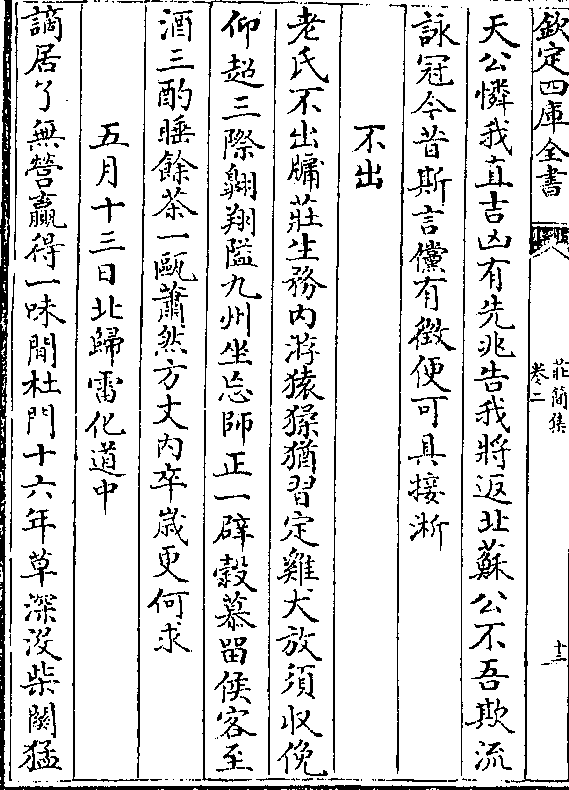 欽定四庫全書
莊簡集
卷二
十三
天公憐我直吉凶有先兆告我將返北蘇公不吾欺流
詠冠今昔斯言儻有徵便可具接淅
不出
老氏不出牖莊生務内游猿猱猶習定雞犬放須收俛
仰超三際翺翔隘九州坐忘師正一辟穀慕留侯客至
酒三酌睡餘茶一甌蕭然方丈内卒歲更何求
五月十三日北歸雷化道中
謫居了無營贏得一味閒杜門十六年草深没柴關猛